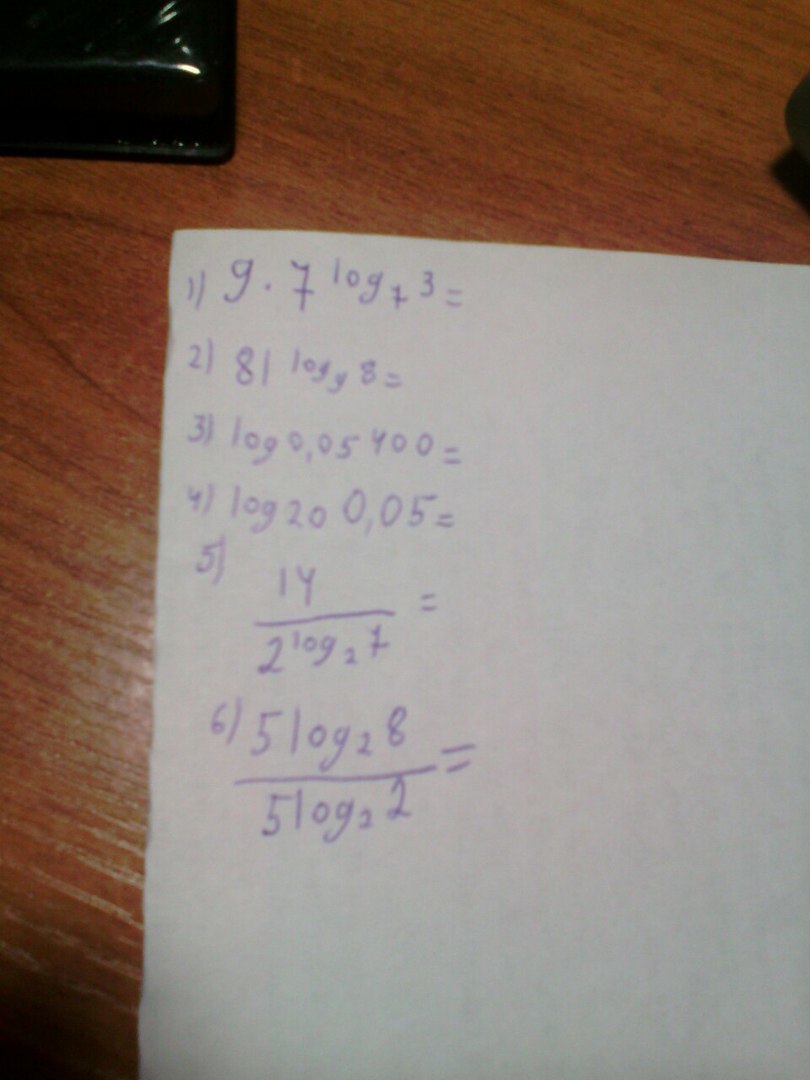 1) 9 · 7^log₇ 3 =
2) 81^log₉ 8 =
3) log 0,05 400 =
4) log 20 0,05 =
5) 14 / 2^log₂ 7 =
6) 5 log₂ 8 / 5 log₂ 2 =